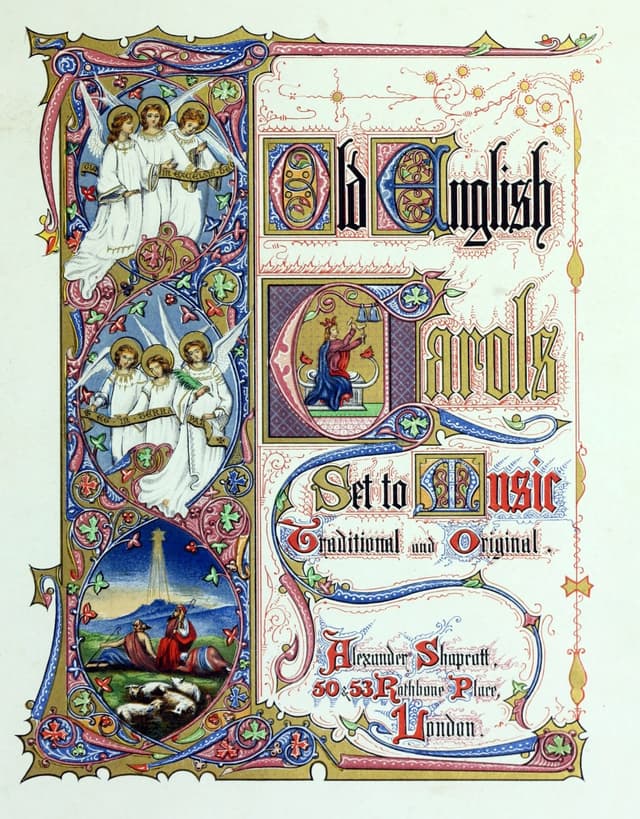 IN EXCELSIS
IN TERRA
Old English
Carols
Set to Music
Traditional and Original.
Alexander Shapcott,
50 & 53 Rathbone Place,
London.